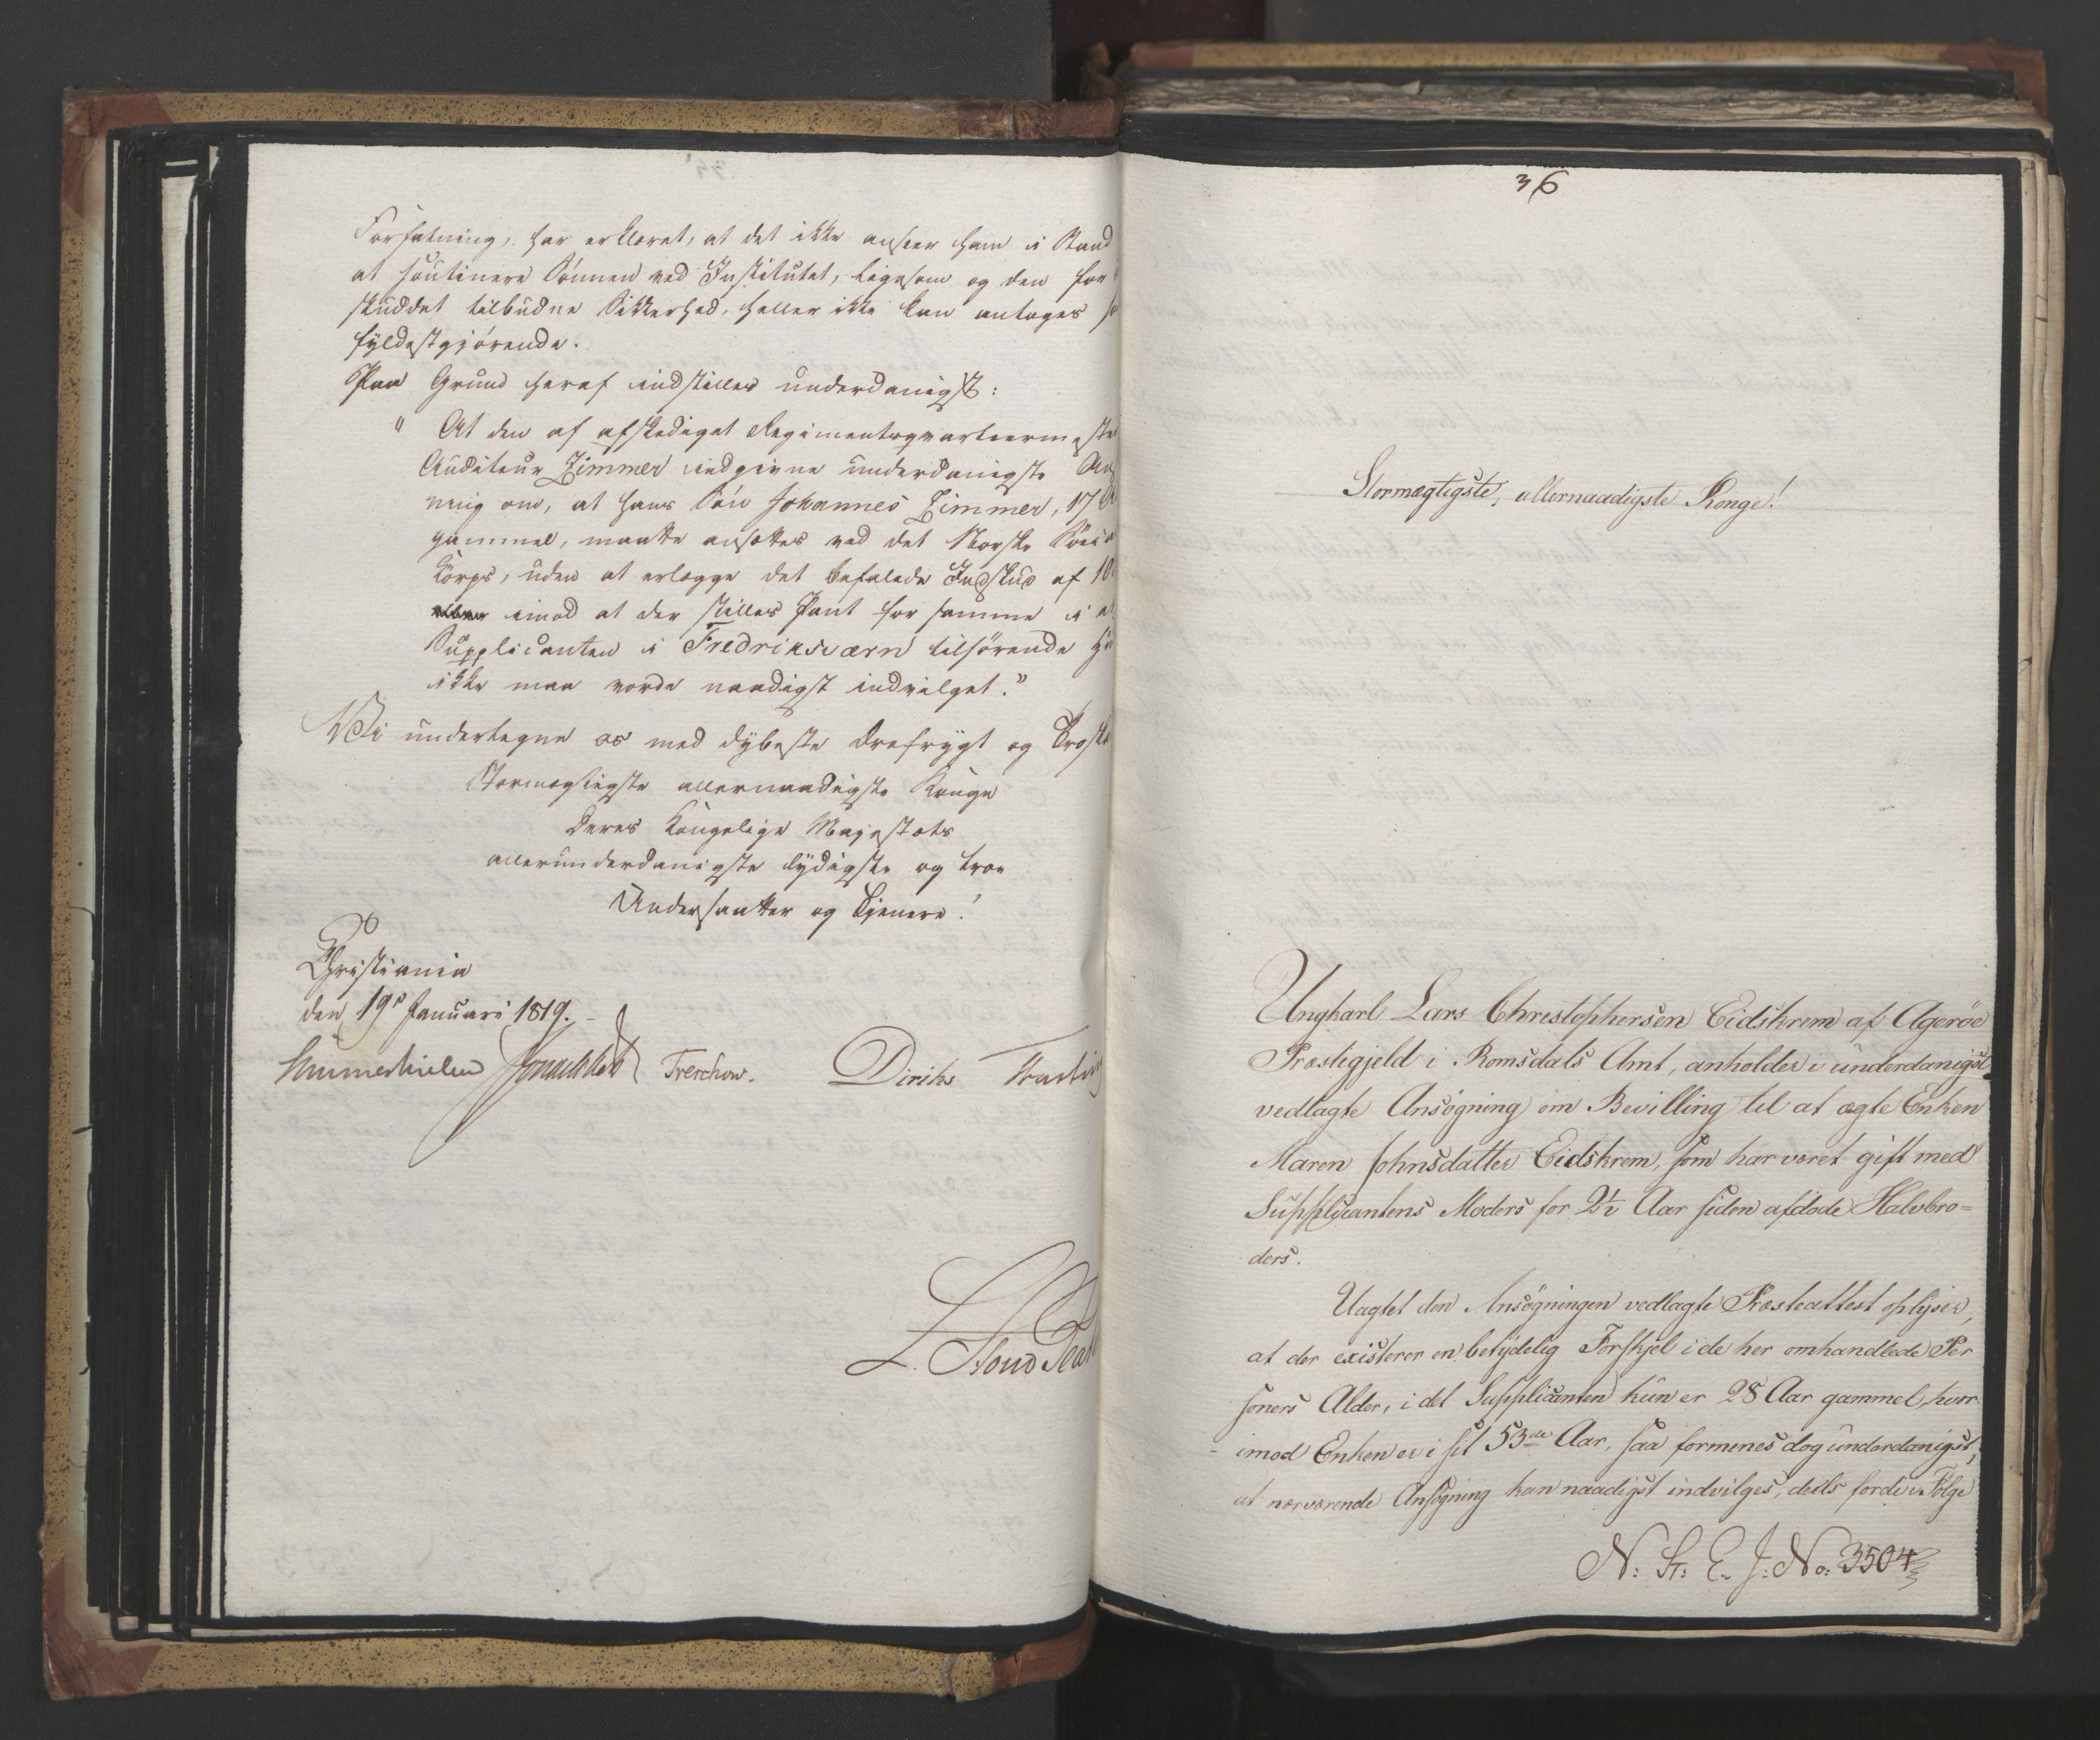 Forfatning, har erklæret, at det ikke anseer ham i Stand
at soutinere Sönnen ved Institutet, ligesom og den for
skuddet tilbudne Sikkerhed, heller ikke kan antages
fyldestgjörende.
Paa Grund heraf indstilles underdanigst:
" At den af afskediget Regimentsqvarteermester
Auditeur Zimmer indgivne underdanigste
ning om, at hans Sön Johannes Zimmer, 17
gammel, maatte ansættes ved det Norske
Corps, uden at erlægge det befalede Indskud af 10
imod at der stilles Pant for samme i
Supplicanten i Fredriksværn tilhörende
ikke maa vorde naadigst indvilget."
Vi undertegne os med dybeste Ærefrygt og
Stormægtigste allernaadigste Konge
Deres Kongelige Majestæts
allerunderdanigste lydigste og troe
Undersaatter og Tjenere!
Christiania
den 19de Januari 1819.
Sommerhielm Treschow. Diriks
36
Stormægtigste, allernaadigste Konge!
Ungkarl Lars Christophersen Eidskrem af Agerøe
Præstegjeld i Romsdals Amt, anholder i underdanigst
vedlagte Ansøgning om Bevilling til at ægte Enken
Maren Johnsdatter Eidskrem, som har været gift med
Supplicantens Moders for 2½ Aar siden afdøde Halvbro=
ders.
Uagtet den Ansøgningen vedlagte Præsteattest oplyser,
at der existerer en betydelig Forskjel i de her omhandlede Per
soners Alder, i det Supplicanten kun er 28 Aar gammel, hvor
- imod Enken er i sit 53de Aar, saa formenes dog underdanigst,
at nærværende Ansøgning kan naadigst indvilges, deels fordi i Følge
N: St: E. J: No: 3504